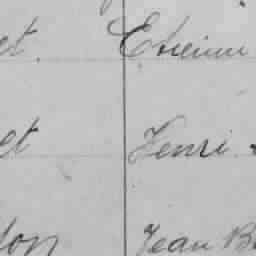 et. Etienne
et Henri
don Jean B